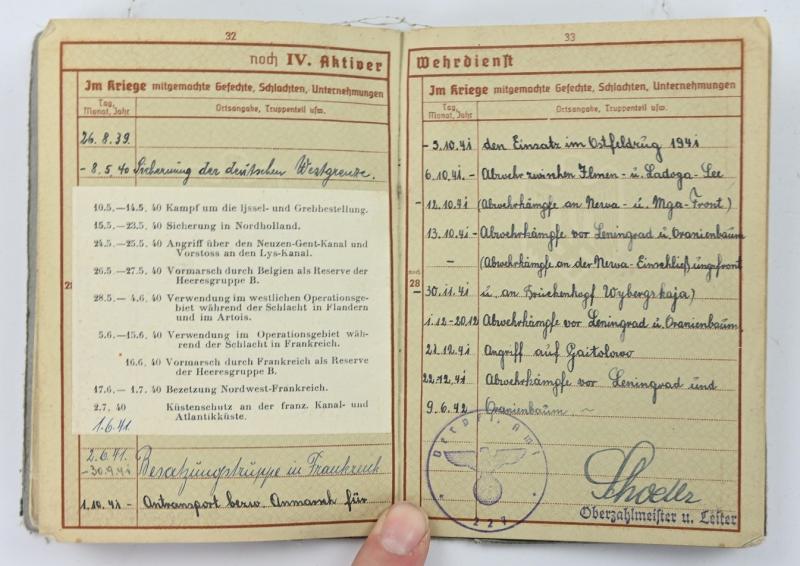 32
noch IV. Aktiver
Im Kriege mitgemachte Gefechte, Schlachten, Unternehmungen
Tag, Monat, Jahr
Ortsangabe, Truppenteil usw.
26.8.39
- 8.5.40 Sicherung der deutschen Westgrenze.
10.5.—14.5. 40 Kampf um die Ijssel- und Grebbestellung.
15.5.—23.5. 40 Sicherung in Nordholland.
24.5.—25.5. 40 Angriff über den Neuzen-Gent-Kanal und
Vorstoss an den Lys-Kanal.
26.5.—27.5. 40 Vormarsch durch Belgien als Reserve der
Heeresgruppe B.
28.5.— 4.6. 40 Verwendung im westlichen Operationsge-
biet während der Schlacht in Flandern
und im Artois.
5.6.—15.6. 40 Verwendung im Operationsgebiet wäh-
rend der Schlacht in Frankreich.
16.6. 40 Vormarsch durch Frankreich als Reserve
der Heeresgruppe B.
17.6.— 1.7. 40 Bezetzung Nordwest-Frankreich.
2.7. 40 Küstenschutz an der franz. Kanal- und
Atlantikküste.
1.6.41
2.6.41.
-30.9.41 Besatzungstruppe in Frankreich
1.10.41 - Antransport bezw. Anmarsch für
33
Wehrdienst
Im Kriege mitgemachte Gefechte, Schlachten, Unternehmungen
Tag, Monat, Jahr
Ortsangabe, Truppenteil usw.
- 5.10.41 den Einsatz im Ostfeldzug 1941
6.10.41. - Abwehr zwischen Ilmen- u. Ladoga-See
- 12.10.41 (Abwehrkämpfe an Newa- u. Mga-Front)
13.10.41 - Abwehrkämpfe vor Leningrad u. Oranienbaum
- (Abwehrkämpfe an der Newa-Einschließungsfront
28
- 30.11.41 u. an Brückenkopf Wybergskaja)
1.12-20.12 Abwehrkämpfe vor Leningrad u. Oranienbaum.
21.12.41 Angriff auf Gaitolowo
22.12.41 Abwehrkämpfe vor Leningrad und
9.6.42 Oranienbaum. ~
227
Oberzahlmeister u. Leiter